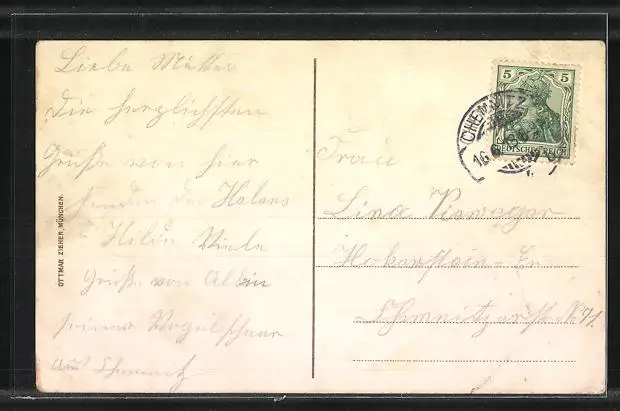 Liebe Mutter
Die herzlichsten
Grüße von hier
senden dir Helene
u Hilda Viele
Grüße von Albin
seiner Vogelschaar
aus Chemnitz
OTTMAR ZIEHER, MÜNCHEN.
5 5
DEUTSCHES REICH
CHEMNITZ
16
Frau
Lina Vieweger
Hohenstein-Er.
Chemnitzerst. N 71.